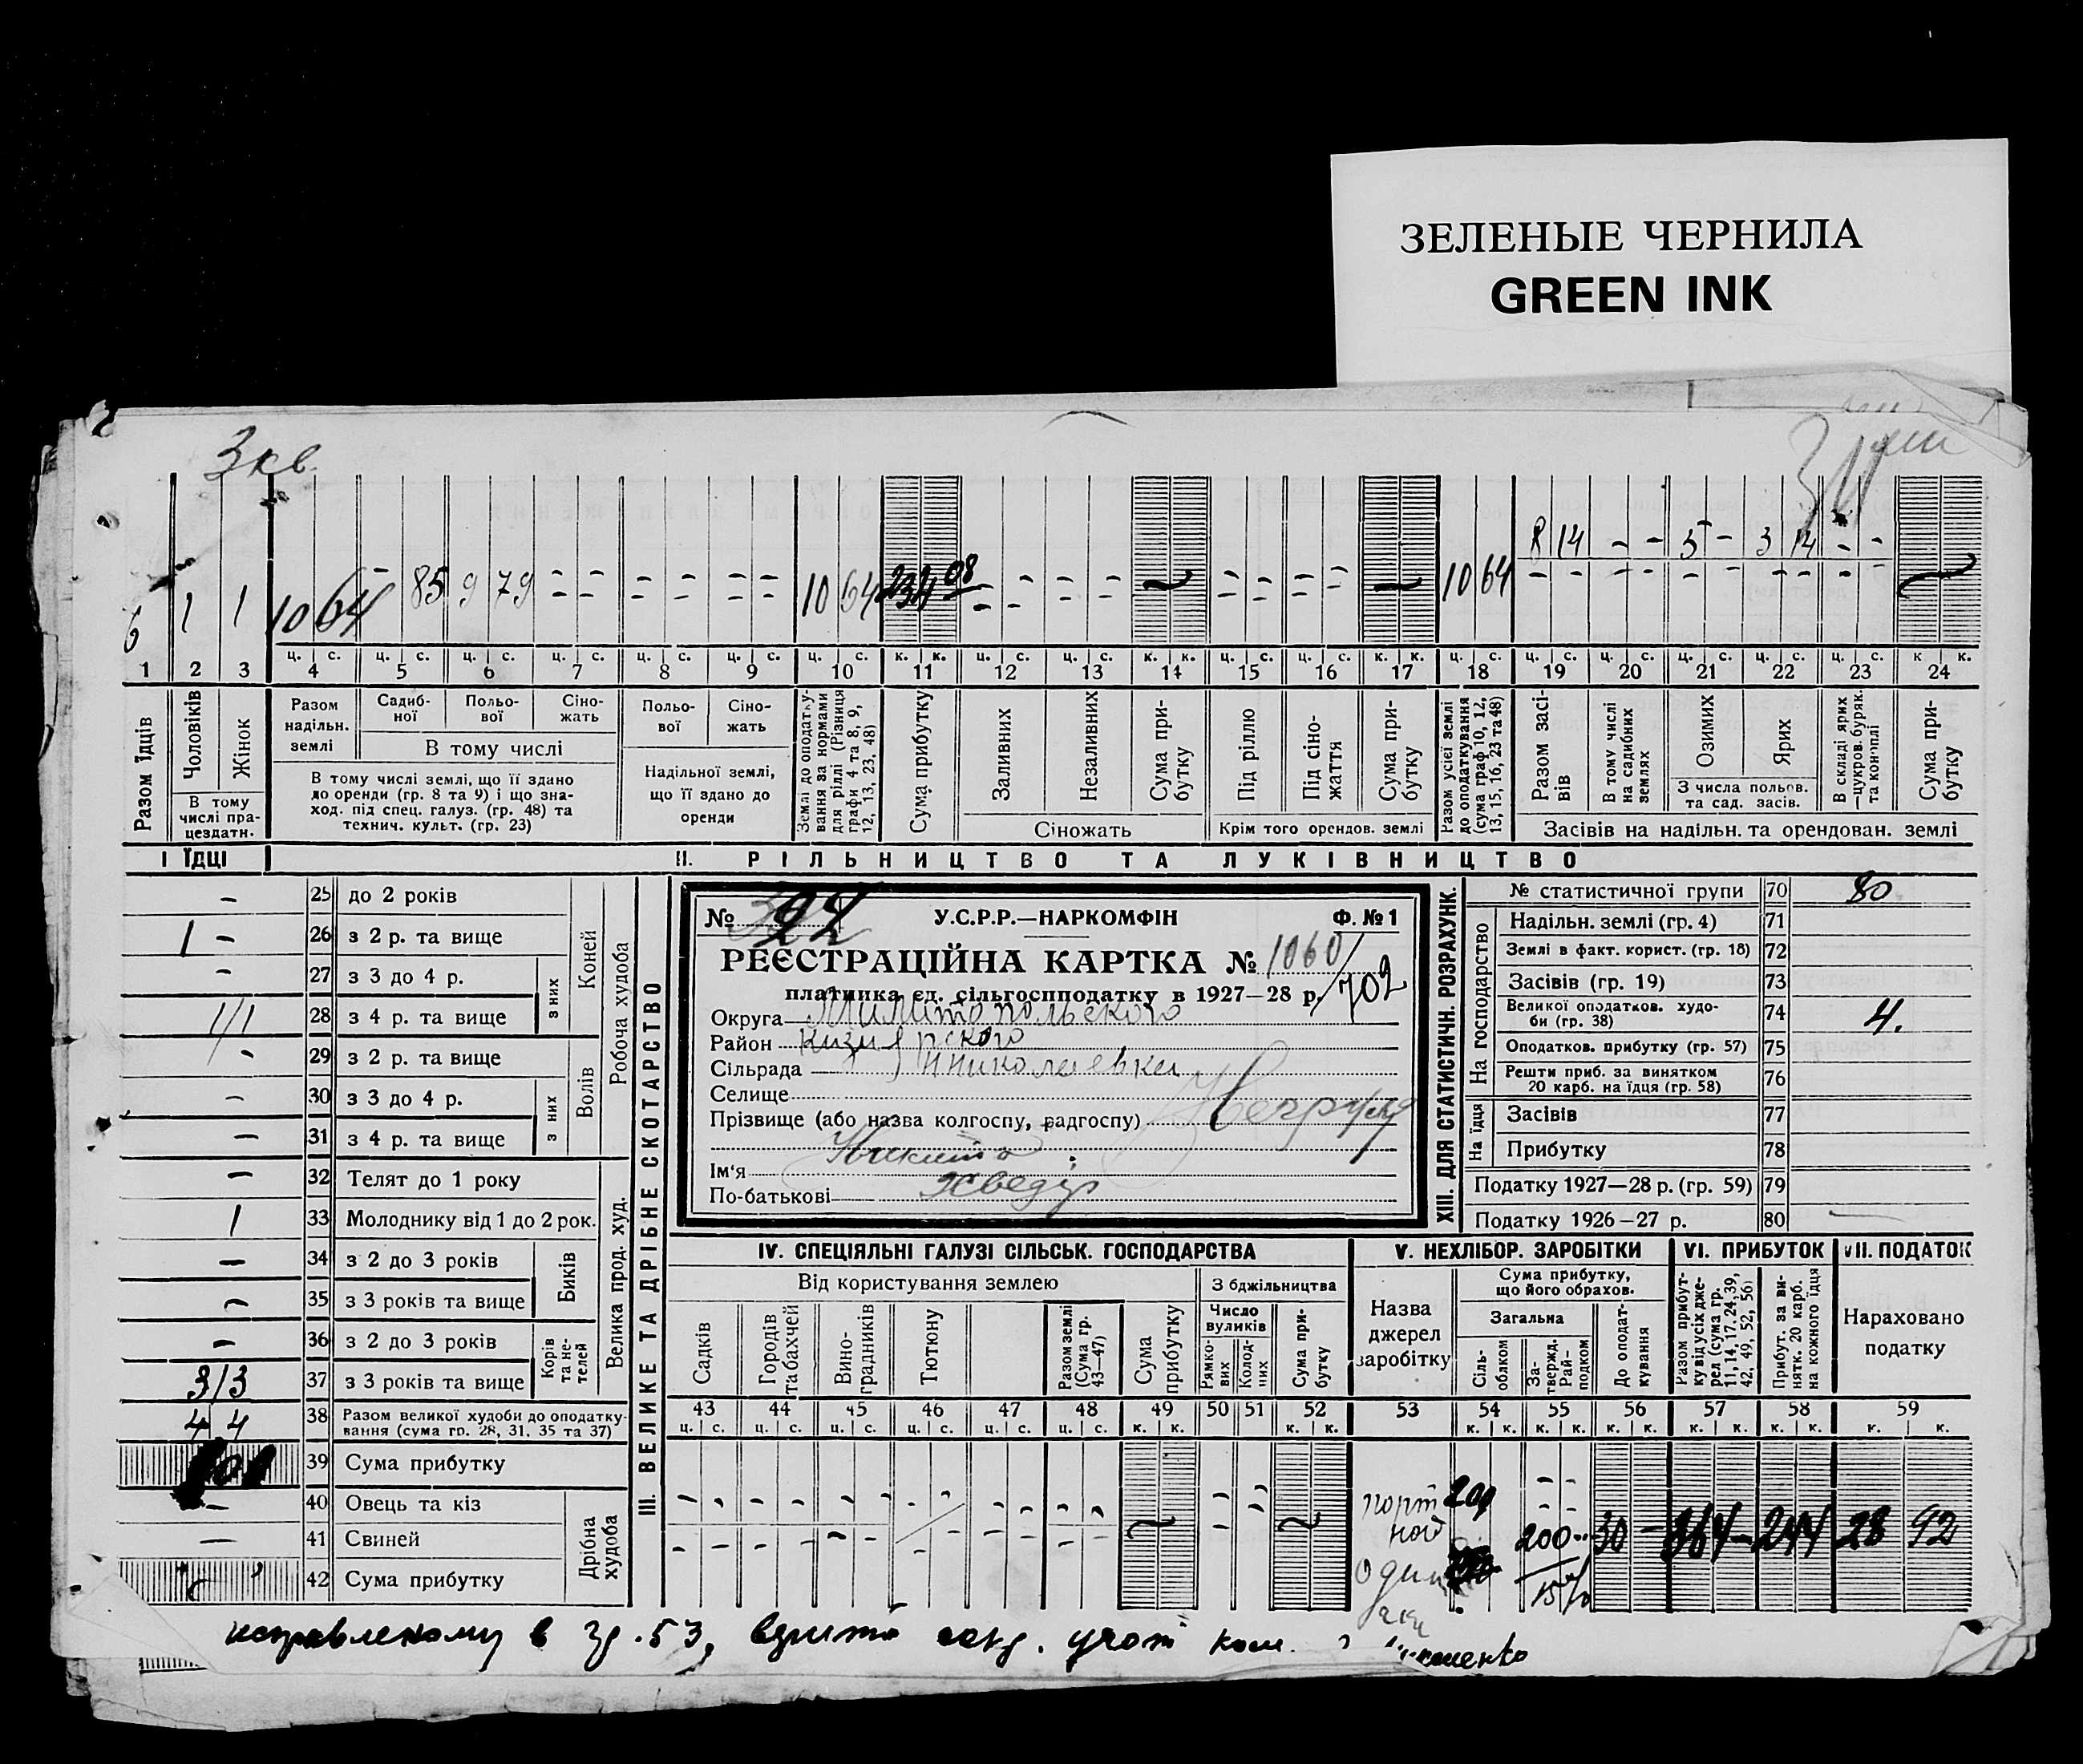 ЗЕЛЕНЫЕ ЧЕРНИЛА
GREEN INK
3 кв
6 1 1 10 64 - 85 9 79 - - - - - - 10 64 234 08 - - - - - - - - 10 64 8 14 - - 5 - 3 14 - -
ц. с. ц. с. ц. с. ц. с. ц. с. ц. с. ц. с. к. к. ц. с. ц. с. к. к. ц. с. ц. с. к. к. ц. с. ц. с. ц. с. ц. с. ц. с. ц. с. к к.
1 2 3 4 5 6 7 8 9 10 11 12 13 14 15 16 17 18 19 20 21 22 23 24
Разом їдців
Чоловіків
Жінок
В тому числі пра-
цездатн.
Разом
надільн.
землі
Садиб-
ної
Польо-
вої
Сіно-
жать
В тому числі
В тому числі землі, що її здано
до оренди (гр. 8 та 9) і що зна-
ход. під спец. галуз. (гр. 48) та
технич. культ. (гр. 23)
Польо-
вої
Сіно-
жать
Надільної землі,
що її здано до
оренди
Землі до оподатку-
вання за нормами
для ріллі (Різниця
графи 4 та 8, 9,
12, 13, 23, 48)
Сума прибутку
Заливних
Незаливних
Сума при-
бутку
Сіножать
Під ріллю
Під сіно-
жаття
Сума при-
бутку
Крім того орендов. землі
Разом усієї землі
до оподаткування
(сума граф 10, 12,
13, 15, 16, 23 та 48)
Разом засі-
вів
В тому числі
на садибних
землях
Озимих
Ярих
З числа польов.
та сад. засів.
В складі ярих
цукров. буряк.
та коноплі
Сума при-
бутку
Засівів на надільн. та орендован. землі
I ЇДЦІ
II. РІЛЬНИЦТВО ТА ЛУКІВНИЦТВО
- 25 до 2 років
1 - 26 з 2 р. та вище
- 27 з 3 до 4 р.
1/1 28 з 4 р. та вище
з них
Коней
- 29 з 2 р. та вище
- 30 з 3 до 4 р.
- 31 з 4 р. та вище
з них
Волів
Робоча худоба
- 32 Телят до 1 року
1 33 Молоднику від 1 до 2 рок.
- 34 з 2 до 3 років
- 35 з 3 років та вище
Биків
- 36 з 2 до 3 років
3/3 37 з 3 років та вище
Корів
та не-
телей
Велика прод. худ.
4 4 38 Разом великої худоби до оподатку-
вання (сума гр. 28, 31, 35 та 37)
39 Сума прибутку
- 40 Овець та кіз
- 41 Свиней
42 Сума прибутку
Дрібна
худоба
III. ВЕЛИКЕ ТА ДРІБНЕ СКОТАРСТВО
№ У.С.Р.Р.—НАРКОМФІН Ф. № 1
РЕЄСТРАЦІЙНА КАРТКА № 1060/702
платника єд. сільгоспподатку в 1927—28 р.
Округа Милитопольского
Район
Сільрада Николаевка
Селище
Прізвище (або назва колгоспу, радгоспу)
Ім'я Никита
По-батькові Хведір
XIII. ДЛЯ СТАТИСТИЧН. РОЗРАХУНК.
№ статистичної групи 70 80
На господарство
Надільн. землі (гр. 4) 71
Землі в факт. корист. (гр. 18) 72
Засівів (гр. 19) 73
Великої оподатков. худо-
би (гр. 38) 74 4.
Оподатков. прибутку (гр. 57) 75
Решти приб. за винятком
20 карб. на їдця (гр. 58) 76
На їдця
Засівів 77
Прибутку 78
Податку 1927—28 р. (гр. 59) 79
Податку 1926—27 р. 80
IV. СПЕЦІЯЛЬНІ ГАЛУЗІ СІЛЬСЬК. ГОСПОДАРСТВА
Від користування землею
З бджільництва
Садків
Городів
та бахчей
Вино-
градників
Тютюну
Разом землі
(Сума гр.
43—47)
Сума
прибутку
Число
вуликів
Рямко-
вих
Колод-
них
Сума при-
бутку
V. НЕХЛІБОР. ЗАРОБІТКИ
Назва
джерел
заробітку
Сума прибутку,
що його обрахов.
Загальна
Сіль-
обліком
За-
твердж.
Рай-
податком
До оподат-
кування
VI. ПРИБУТОК
Разом прибут-
ку від усіх дже-
рел (сума гр.
11, 14, 17, 24, 39,
42, 49, 52, 56)
Прибут. за ви-
нятк. 20 карб.
на кожного їдця
VII. ПОДАТОК
Нараховано
податку
43 44 45 46 47 48 49 50 51 52 53 54 55 56 57 58 59
ц. с. ц. с. ц. с. ц. с. ц. с. ц. с. к. к. к. к. к. к. к. к. к. к. к. к. к. к. к. к.
портной 200 200 30 - 364 - 244 28 92
15%
исправленому в гр. 53,